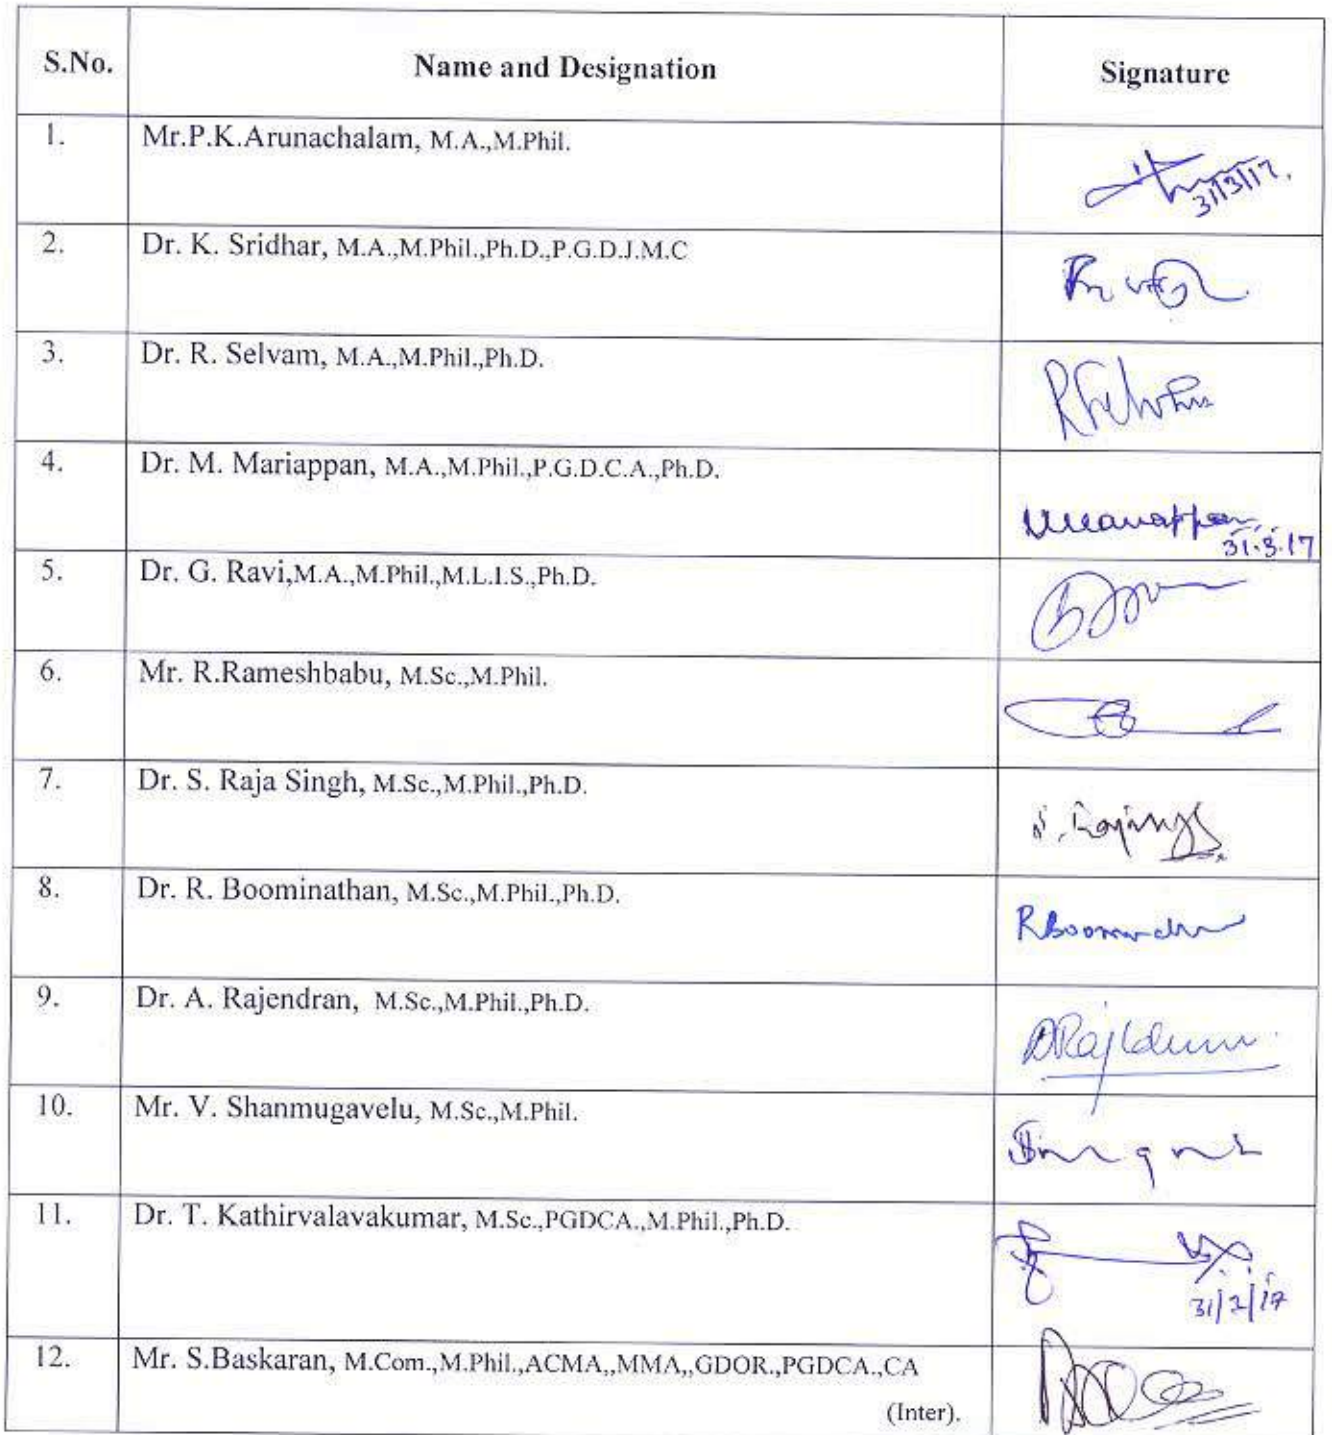 S.No. Name and Designation Signature
1. Mr.P.K.Arunachalam, M.A.,M.Phil.
31/3/17.
2. Dr. K. Sridhar, M.A.,M.Phil.,Ph.D.,P.G.D.J.M.C
3. Dr. R. Selvam, M.A.,M.Phil.,Ph.D.
4. Dr. M. Mariappan, M.A.,M.Phil.,P.G.D.C.A.,Ph.D.
31.3.17
5. Dr. G. Ravi,M.A.,M.Phil.,M.L.I.S.,Ph.D.
6. Mr. R.Rameshbabu, M.Sc.,M.Phil.
7. Dr. S. Raja Singh, M.Sc.,M.Phil.,Ph.D.
8. Dr. R. Boominathan, M.Sc.,M.Phil.,Ph.D.
9. Dr. A. Rajendran, M.Sc.,M.Phil.,Ph.D.
10. Mr. V. Shanmugavelu, M.Sc.,M.Phil.
11. Dr. T. Kathirvalavakumar, M.Sc.,PGDCA.,M.Phil.,Ph.D.
12. Mr. S.Baskaran, M.Com.,M.Phil.,ACMA,,MMA,,GDOR.,PGDCA.,CA
(Inter).